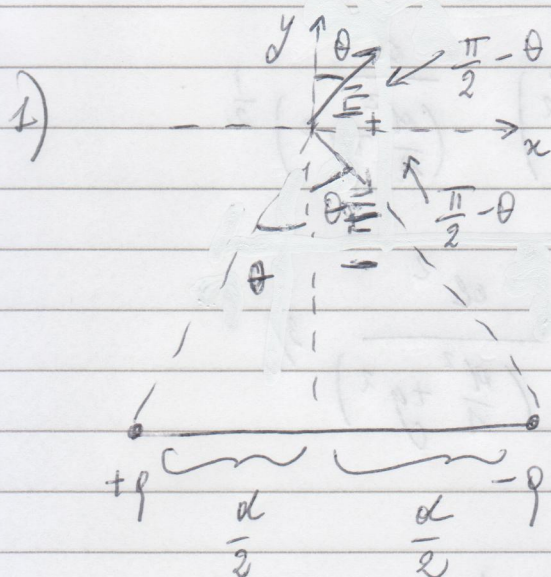 1)
y
θ
π/2 - θ
E
+
x
θ
E
-
π/2 - θ
θ
+q
-q
d/2
d/2